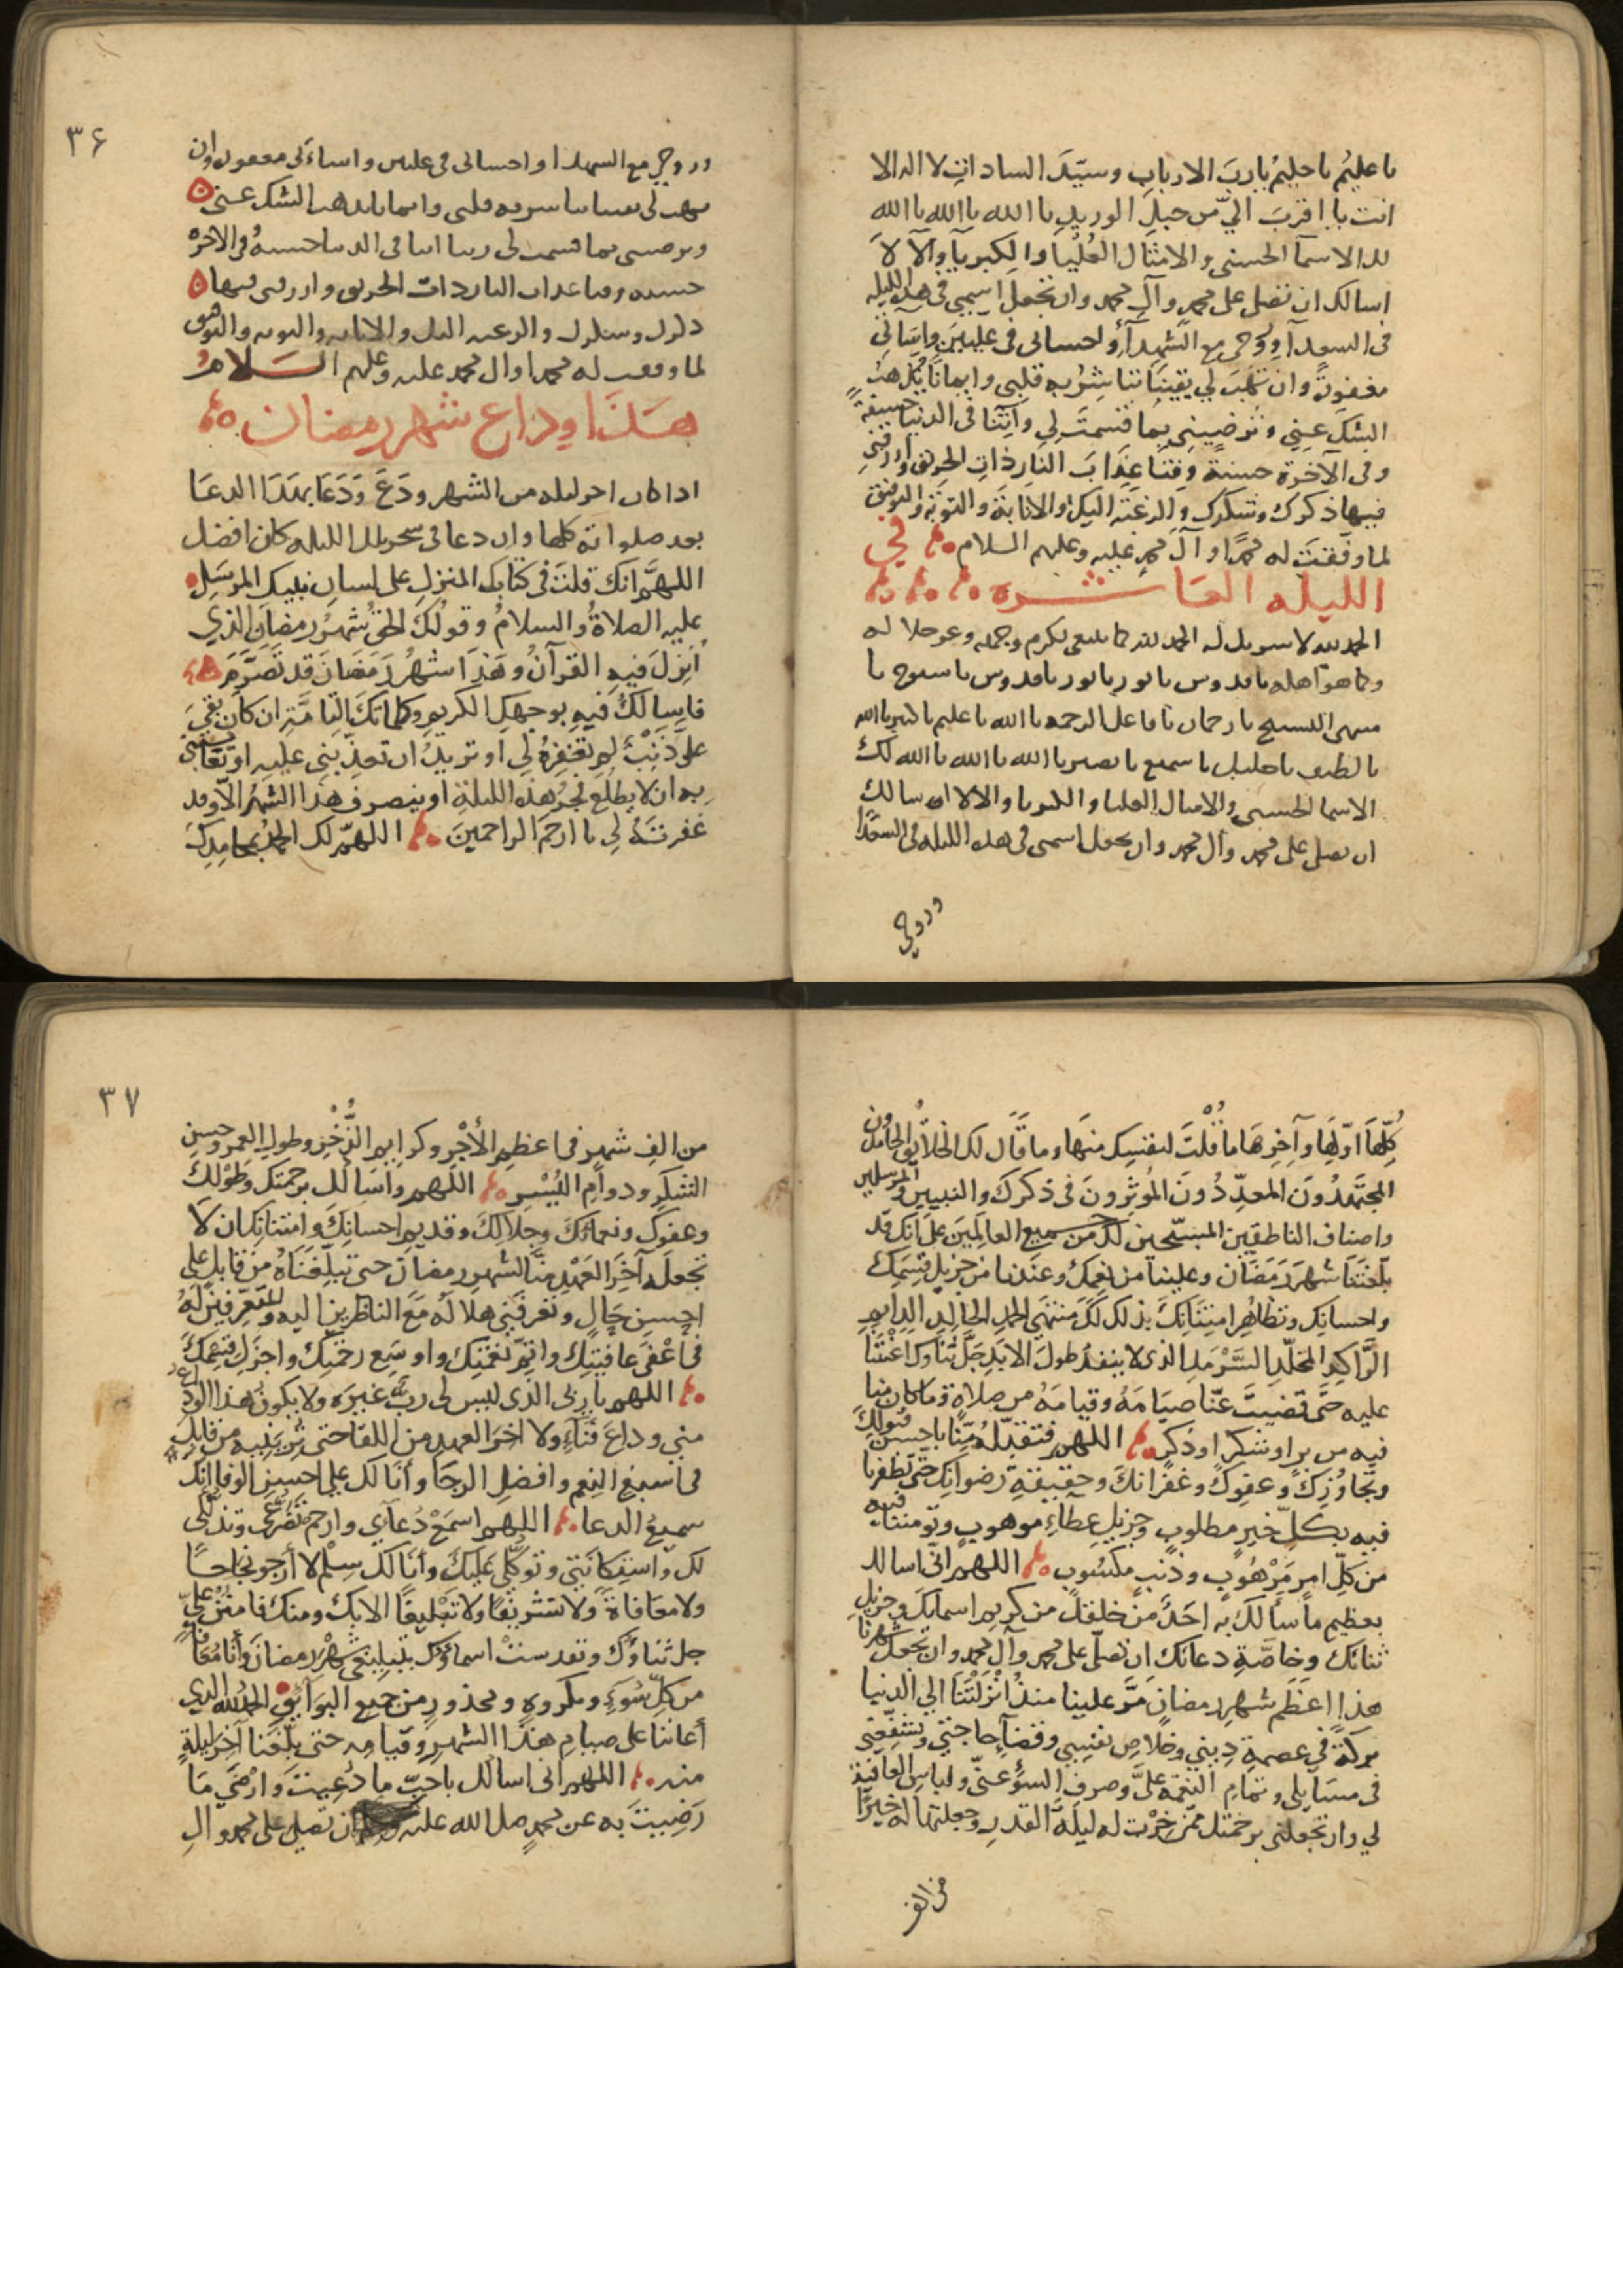 يا عليم يا حليم يا رب الارباب وسيد السادات لا اله الا
انت يا اقرب الي من حبل الوريد يا الله يا الله يا الله
لك الاسما الحسنى والامثال العليا والكبريا والالا
اسالك ان تصلي على محمد وآل محمد وان تجعل اسمي في هذه الليله
في السعدآ وروحي مع الشهدآ واحساني في عليين واساتي
مغفورة وان تهب لي يقينا تباشر به قلبي وايمانا يذهب
الشك عني وترضيني بما قسمت لي وآتنا في الدنيا حسنة
وفي الآخرة حسنة وقنا عذاب النار ذات الحريق وارزقني
فيها ذكرك وشكرك والرغبة اليك والانابة والتوبة والتوفيق
لما وفقت له محمدا وآل محمد عليه وعليهم السلام في
الليله العاشره
الحمد لله لا سريك له الحمد لله كما ينبغي لكرم وجهه وعز جلاله
وكما هو اهله يا قدوس يا نور يا نور يا قدوس يا سبوح يا
منتهى التسبيح يا رحمان يا فاعل الرحمه يا الله يا عليم يا كبير يا الله
يا لطيف يا جليل يا سميع يا بصير يا الله يا الله يا الله لك
الاسما الحسنى والامثال العليا والكبريا والالا اسالك
ان تصلي على محمد وآل محمد وان تجعل اسمي في هذه الليله في السعدا
وروحي
٣٦
وروحي مع الشهدا واحساني في عليين واساءتي مغفوره وان
تهب لي يقينا تباسر به قلبي وايمانا يذهب الشك عني
وترضيني بما قسمت لي ربنا اتنا في الدنيا حسنة وفي الاخرة
حسنه وقنا عذاب النار ذات الحريق وارزقني فيها
ذكرك وشكرك والرغبه اليك والانابه والتوبه والتوفيق
لما وفقت له محمدا وال محمد عليه وعليهم السلام
هذا وداع شهر رمضان
اذا كان اخر ليله من الشهر ودع ودعا بهذا الدعا
بعد صلواته كلها وان دعا في سحر تلك الليله كان افضل
اللهم انك قلت في كتابك المنزل على لسان نبيك المرسل
عليه الصلاة والسلام وقولك الحق شهر رمضان الذي
أنزل فيه القرآن وهذا شهر رمضان قد تصرم
فاسالك فيه بوجهك الكريم وكلماتك التامة ان كان بقي
علي ذنب لم تغفره لي او تريد ان تعذبني عليه او تقايسني
به ان لا يطلع فجر هذه الليلة او ينصرف هذا الشهر الا وقد
غفرته لي يا ارحم الراحمين اللهم لك الحمد بمحامدك
كلها اولها وآخرها ما قلت لنفسك منها وما قال لك الخلائق الحامدون
المجتهدون المعدّدون المؤثرون في ذكرك والنبيين والمرسلين
واصناف الناطقين المسبّحين لك من جميع العالمين على انك قد
بلّغتنا شهر رمضان وعلينا من نعمك وعندنا من جزيل قسمك
واحسانك وتظاهر امتنانك بذلك لك منتهى الحمد الخالد الدايم
الراكد المخلّد السرمد الذي لا ينفد طول الابد جلّ ثناوك اعنتنا
عليه حتى قضيت عنّا صيامه وقيامه من صلاة وما كان منا
فيه من بر او شكر او ذكر اللهم فتقبله منا باحسن قبولك
وتجاوزك وعفوك وغفرانك وحقيقة رضوانك حتى تظفرنا
فيه بكل خير مطلوب وجزيل عطاء موهوب وتومننا فيه
من كل امر مرهوب وذنب مكسوب اللهم اني اسالك
بعظيم ما سألك به احد من خلقك من كريم اسمايك وجزيل
ثنائك وخاصة دعائك ان تصلي على محمد وآل محمد وان تجعل شهرنا
هذا اعظم شهر رمضان مرّ علينا منذ انزلتنا الى الدنيا
بركة في عصمة ديني وخلاص نفسي وقضآ حاجتي وتشفعني
في مسايلي وتمام النعمه علي وصرف السوء عني ولباس العافية
لي وان تجعلني برحمتك ممن خرت له ليلة القدر وجعلتها له خيرا
من الف
٣٧
من الف شهر في اعظم الأجر وكرايم الذخر وطول العمر وحسن
الشكر ودوام اليسر اللهم واسألك برحمتك وطولك
وعفوك ونعمائك وجلالك وقديم احسانك وامتنانك ان لا
تجعله آخر العهد منا لشهر رمضان حتى تبلغناه من قابل على
احسن حال وتعرفني هلاله مع الناظرين اليه والمتعرفين له
في اعفى عافيتك واتمّ نعمتك واوسع رحمتك واجزل قسمك
اللهم يا ربي الذي ليس لي رب غيره ولا يكون هذا الوداع
مني وداع فناء ولا اخر العهد من اللقا حتى ترينيه من قابل
في اسبغ النعم وافضل الرجا وأنا لك على احسن الوفا انك
سميع الدعا اللهم اسمع دعآئي وارحم تضرعي وتذللي
لك واستكانتي وتوكلي عليك وأنا لك سلم لا أرجو نجاحا
ولا معافاة ولا تشريفا ولا تبليغا الا بك ومنك فامنن علي
جل ثناؤك وتقدست اسماؤك بتبليغي شهر رمضان وأنا معافا
من كل سوء ومكروه ومحذور من جميع البوائق الحمد لله الذي
أعاننا على صيام هذا الشهر وقيامه حتى بلّغنا آخر ليلة
منه اللهم اني اسالك باحبّ ما دعيت وارضى ما
رضيت به عن محمد صلى الله عليه ان تصلي على محمد وال